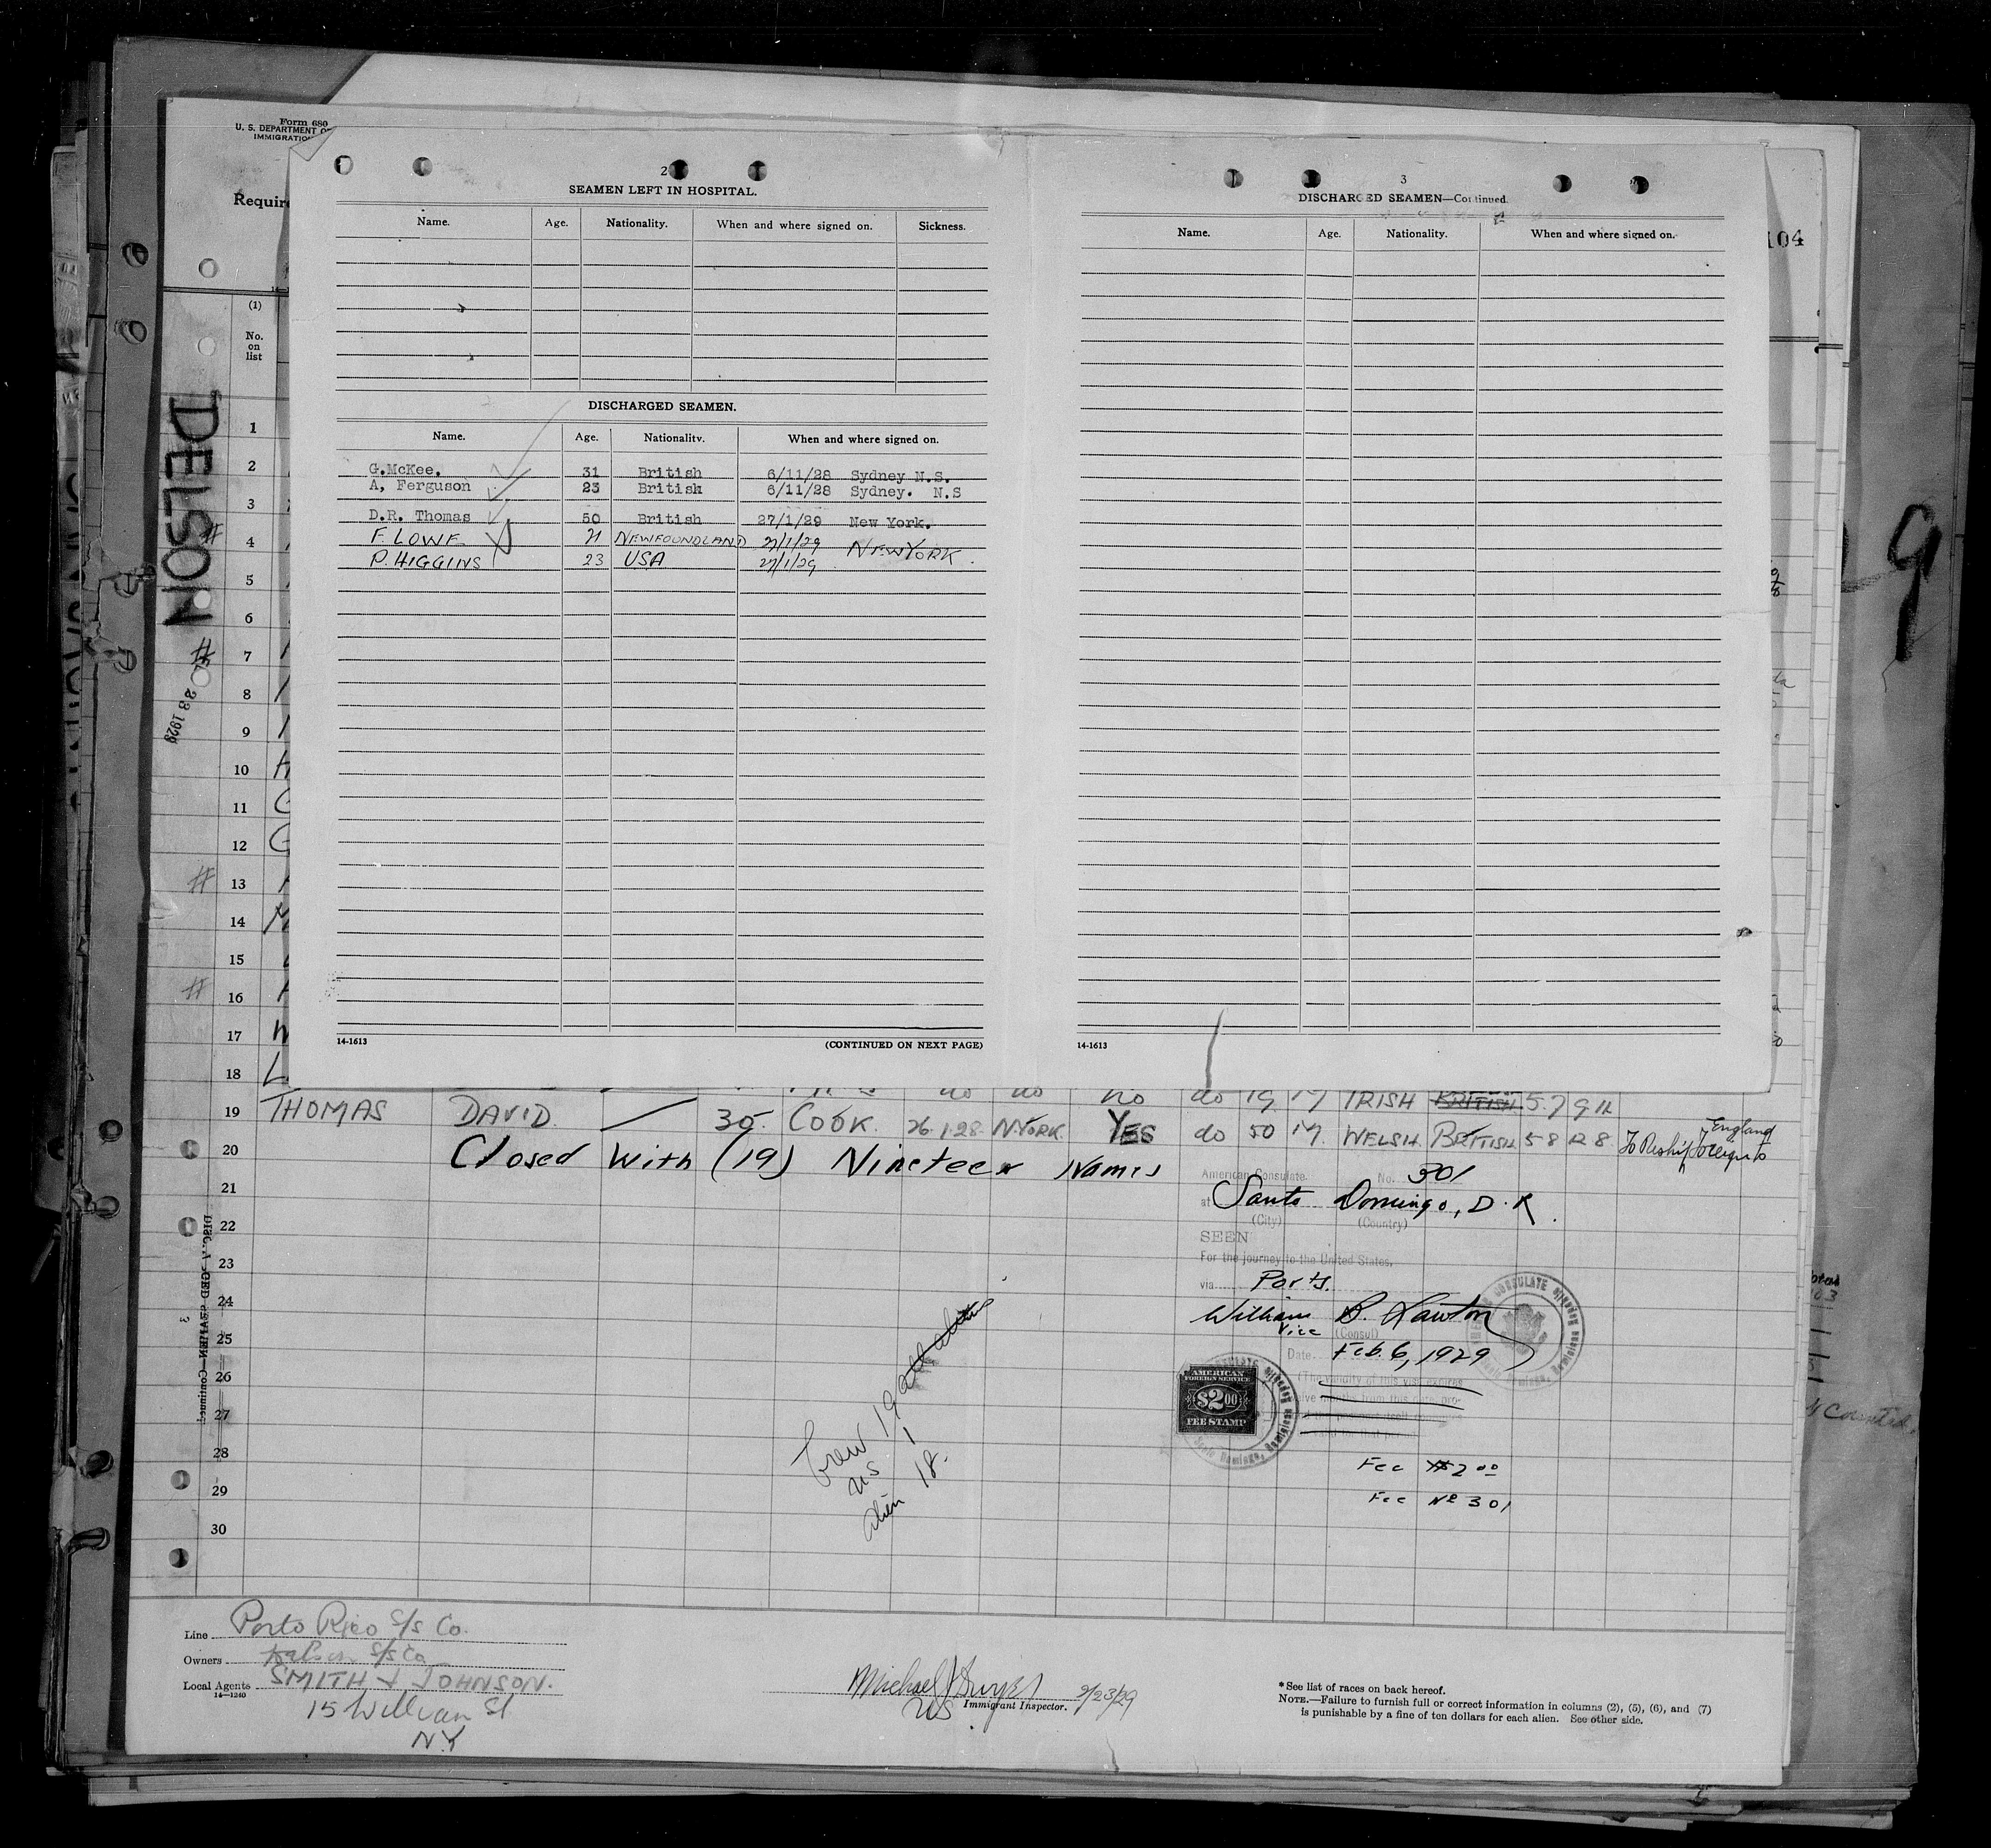 Form 680
U. S. DEPARTMENT
IMMIGRATION
104
(1)
No.
on
list
DELSON
2
SEAMEN LEFT IN HOSPITAL.
Name. Age. Nationality. When and where signed on. Sickness.
DISCHARGED SEAMEN.
Name. Age. Nationality. When and where signed on.
G.McKee. 31 British 6/11/28 Sydney N.S.
A, Ferguson 23 British 6/11/28 Sydney. N.S
D.R. Thomas 50 British 27/1/29 New York.
F. LOWE 21 NEWFOUNDLAND 27/1/29 NEW YORK
P. HIGGINS 23 USA 27/1/29
14-1613 (CONTINUED ON NEXT PAGE)
3
DISCHARGED SEAMEN—Continued.
Name. Age. Nationality. When and where signed on.
14-1613
1
2
3
# 4
5
6
# 7
8
9
10
11
12
# 13
14
15
# 16
17
18
do do no do 19 M IRISH BRITISH 5.7 9 11
19 THOMAS DAVID 35 COOK. 26.1.28 N.YORK. YES do 50 M. WELSH BRITISH 5 8 12 8 To Reship Foreign to England
20 Closed With (19) Nineteen Names
21
22
23
24
25
26
27
28
29
30
American Consulate. No. 301
at Santo Domingo, D.R.
(City) (Country)
SEEN
For the journey to the United States,
via Ports.
William B. Lawton
Vice (Consul)
Date Feb. 6, 1929
AMERICAN
FOREIGN SERVICE
$2.00
FEE STAMP
Fee $2.00
Fee No 301
Crew 19
US 1
alien 18.
Counted
9
Line Porto Rico S/S Co.
Owners S/S Co
Local Agents SMITH & JOHNSON.
14—1240
15 William St
N.Y
Michael J Dwyer 2/23/29
US Immigrant Inspector.
* See list of races on back hereof.
NOTE.—Failure to furnish full or correct information in columns (2), (5), (6), and (7)
is punishable by a fine of ten dollars for each alien. See other side.